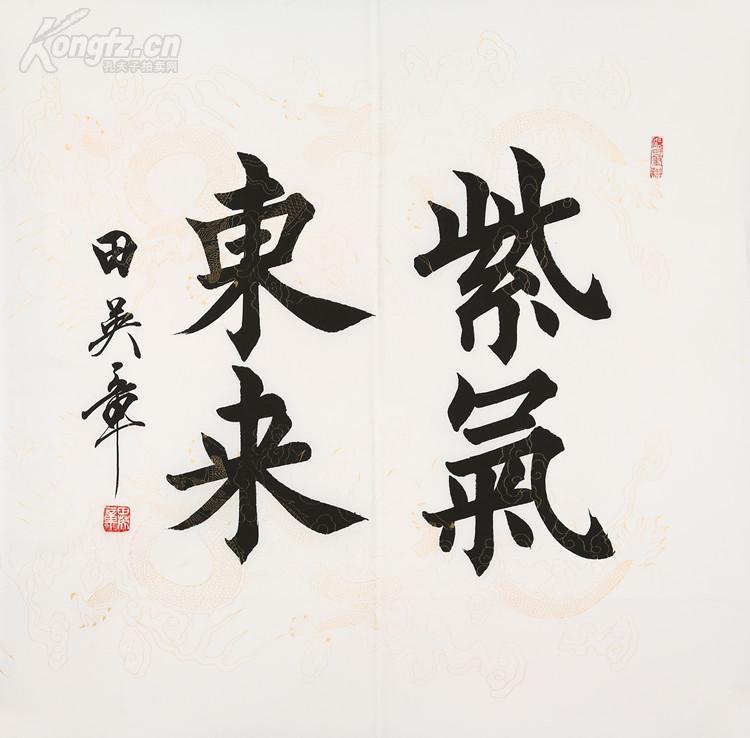 紫氣
東来
田英章
Kongfz.cn
孔夫子拍卖网